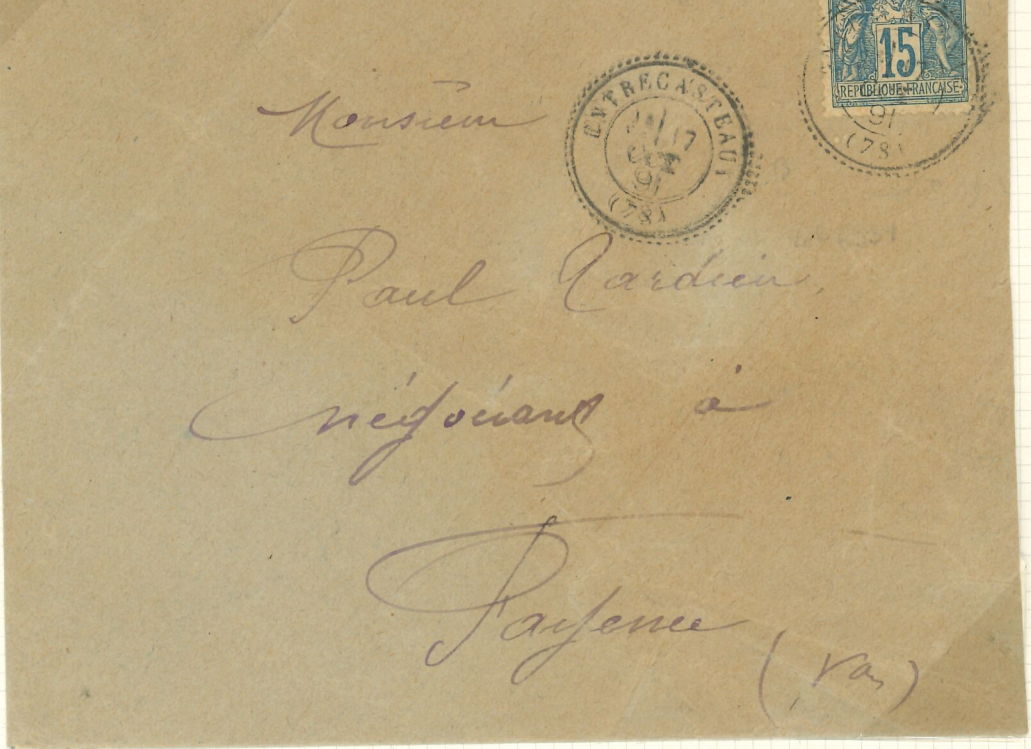 15
REPUBLIQUE FRANÇAISE
(78)
ENTRECASTEAUX
17
91
(78)
Monsieur
Paul Tardieu
négociant à
Fayence
(Var)